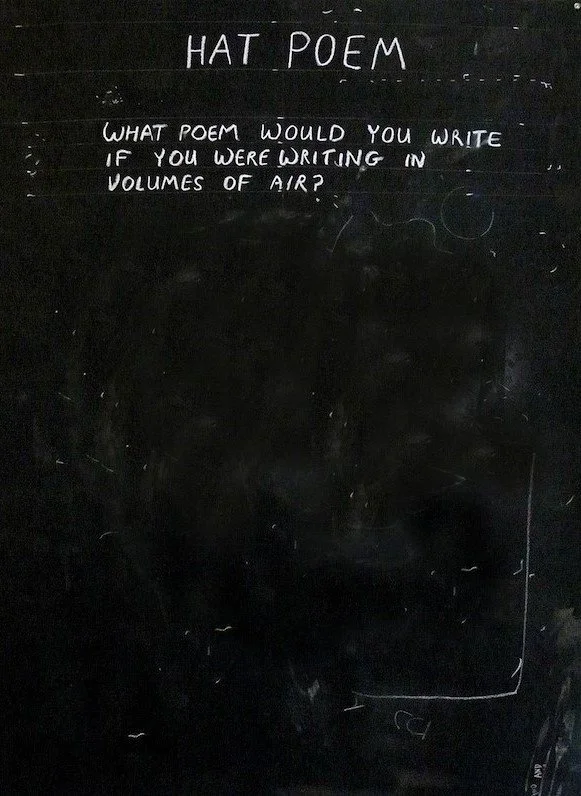 HAT POEM
WHAT POEM WOULD YOU WRITE
IF YOU WERE WRITING IN
VOLUMES OF AIR?